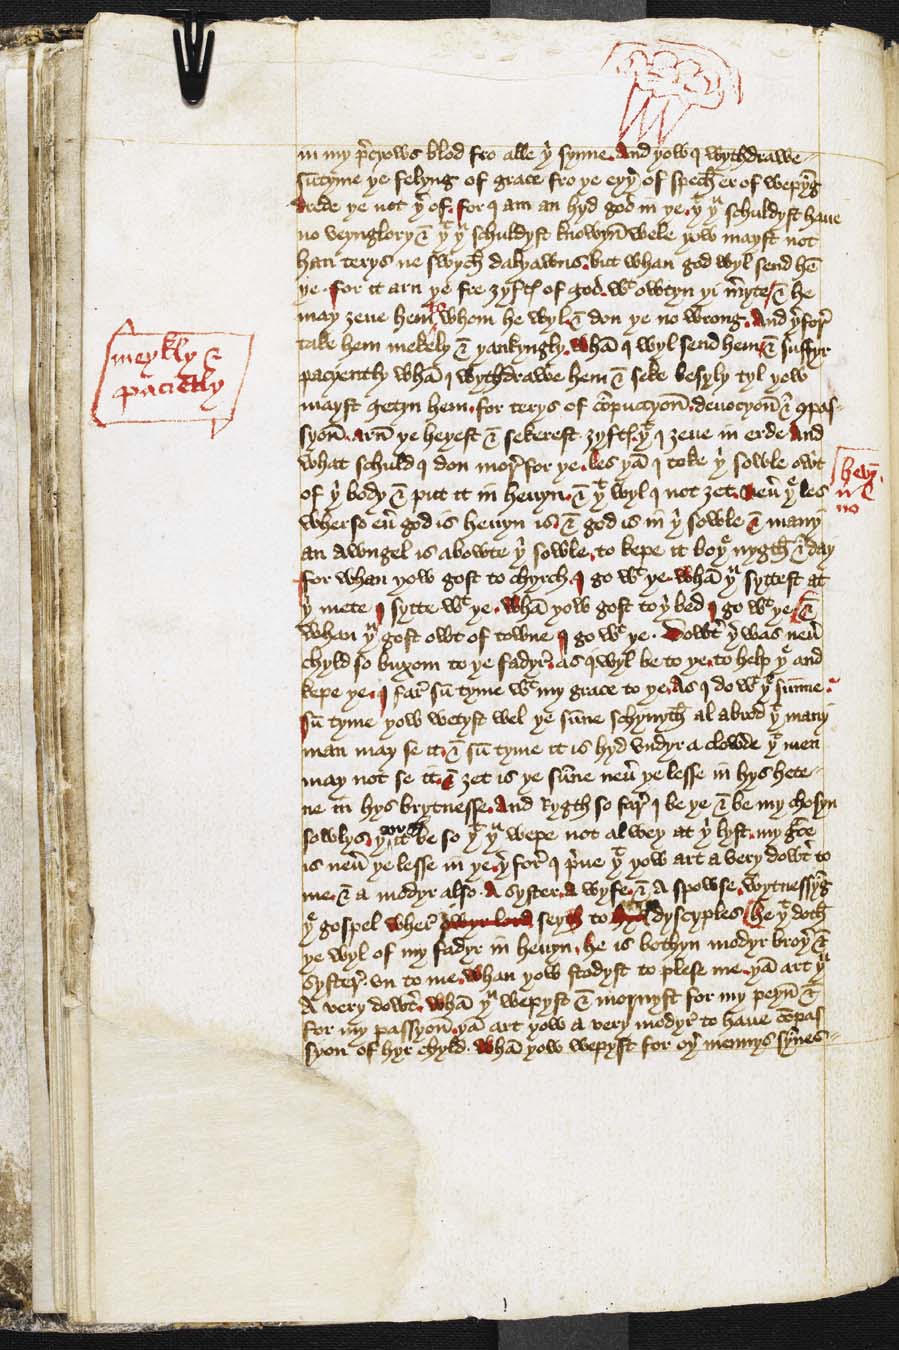 in my p̄cyows blod fro alle þͥ synne. And þow I wythdrawe
sūtyme þe felyng of grace fro þe eyþ̄ of spech er of wepyng
drede þe not þ̄ of. for I am an hyd god in þe. þͭ þͧ schuldyst haue
no veynglory & þͭ þͧ schuldyst knowyn̄ wele þow mayst not
han terys ne swych dalyawns. but whan god wyl send hē
þe. for it arn þe fre ȝyftys of god. wͭ owtyn þi m̄yte/ & he
may ȝeue hem to whom he wyl. & don þe no wrong. And þ̄for̄
take hem mekely & þankyngly. whā I wyl send hem/ & suffyr
pacyently whā I wythdrawe hem & seke besyly tyl þow
mayst getyn hem. for terys of cōpuccyon̄. deuocyon̄ & cōpas-
syon̄. arn̄ þe heyest & sekerest ȝyftys. þͭ I ȝeue in erde. And
what schuld I don mor̄ for þe. les þā I toke þͥ sowle owt
of þͥ body & put it in heuyn. & þͭ wyl I not ȝet. neū þͤ les
wher so eū god is heuyn is. & god is in þͥ sowle & many
an awngel is abowte þͥ sowle. to kepe it boþͤ nygth & day
for whan þow gost to chyrch. I go wͭ þe. whā þͧ syttest at
þͥ mete I sytte wͭ þe. whā þow gost to þͥ bed I go wͭ þe/ &
whan þͧ gost owt of towne I go wͭ þe. Dowt̄ þ̄ was neū
chyld so buxom to þe fadyr. as I wyl be to þe. to help þͤ and
kepe þe. I far̄ sū tyme wͭ my grace to þe. As I do wͭ þͤ sunne.
sū tyme þow wetyst wel þe sūne schynyth al abrod þͭ many
man may se it. & sū tyme it is hyd vndyr a clowde þͭ men
may not se it. & ȝet is þe sūne neū þe lesse in hys hete
ne in hys brytnesse. And rygth so far̄ I be þe & be my chosyn
sowlys. þow it be so þͭ þͧ wepe not alwey at þͥ lyst. my gr̄ce
is neū þe lesse in þe. þ̄ for̄ I p̄ue þͭ þow art a very dowt̄ to
me. & a modyr also. A syster. a wyfe. & A spowse. wytnessyng
þͤ gospel wher̄ owyr lord seyth to hys dyscyples he þͭ doth
þe wyl of my fadyr in heuyn. he is bothyn modyr broþ̄ &
syster̄. vn to me. whan þow stodyst to plese me. þā art þͧ
A very dowt̄. whā þͧ wepyst & mornyst for my peyn̄ &
for my passyon̄. þā art þow a very modyr to haue cōpas
syon of hyr chyld. whā þow wepyst for oþ̄ mennys synnes
meykly &
pacie̅tly
heu̅y̅
n
no